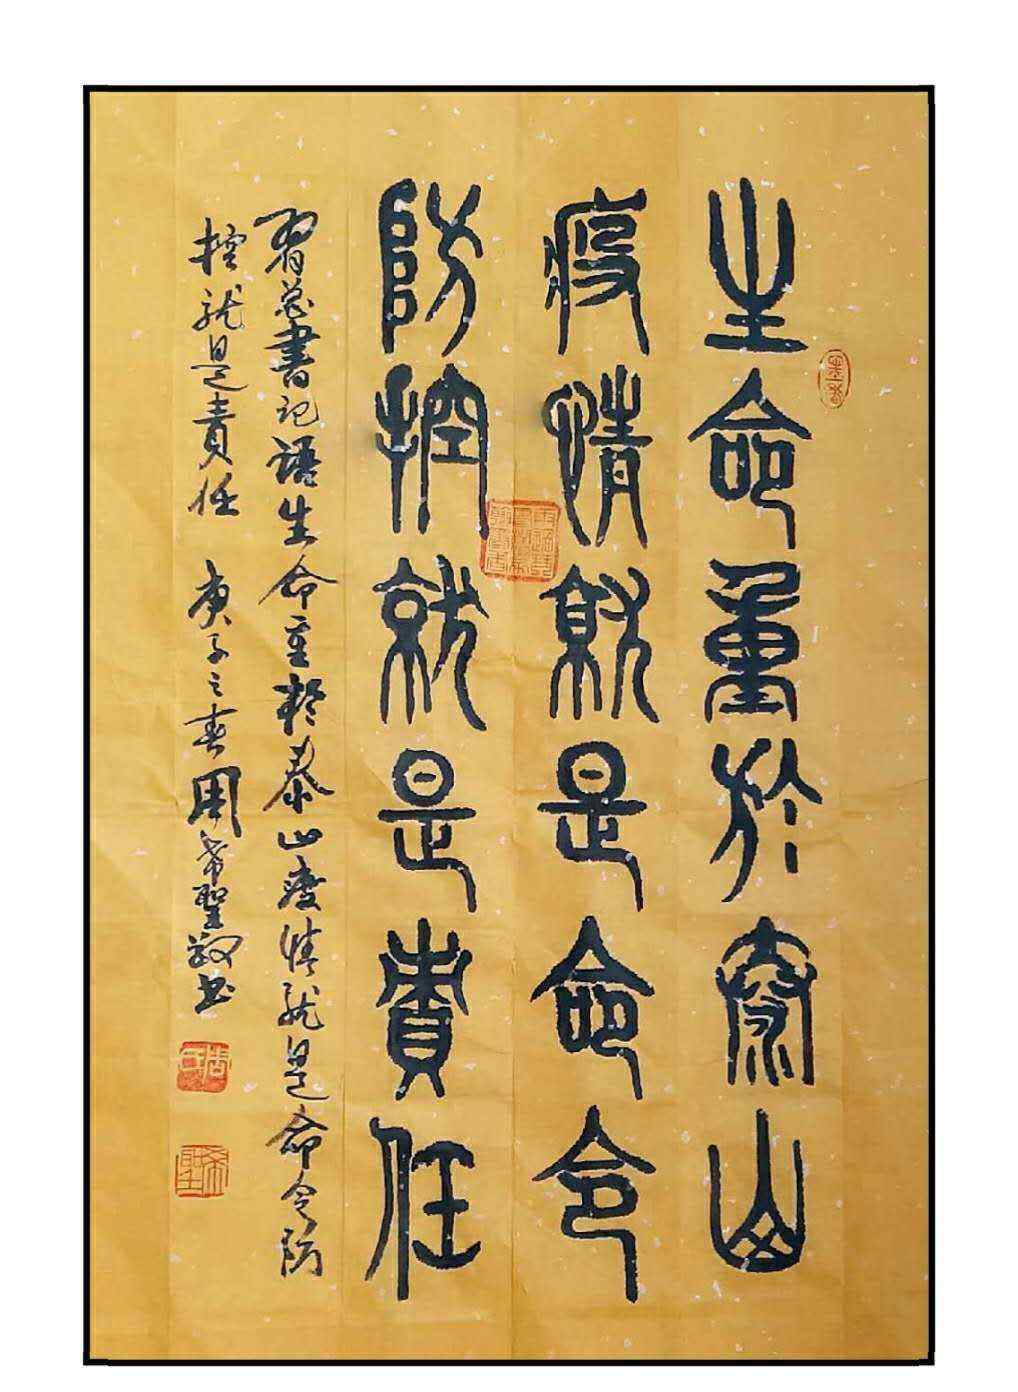 生命重於泰山
疫情就是命令
防控就是責任
習總書記語生命重於泰山疫情就是命令防
控就是責任 庚子之春周希聖敬书
周
希聖